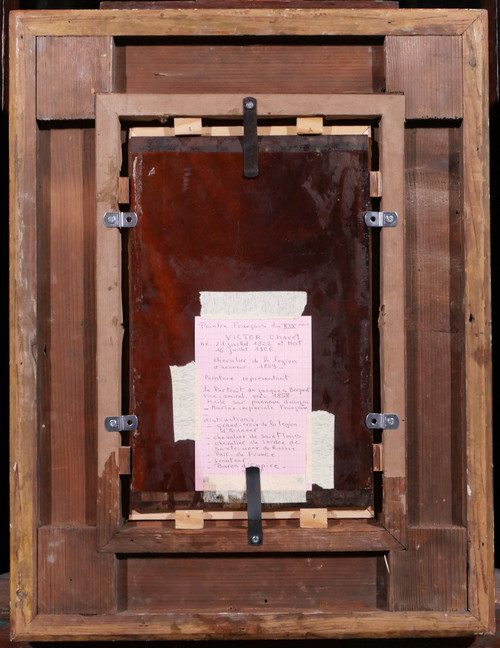 Peintre Français du XIXème
VICTOR Chavet
né 21 juillet 1822 et Mort
juillet 1906
chevalier de la légion
d'honneur. 1859
Peinture représentant
le Portrait de Jacques
Huile sur panneau
Marine impériale Française
distinctions
- grand-croix de la légion
d'Honneur
- chevalier de Saint Louis
- chevalier de l'ordre de
Sainte-Anne de Russie
Pair de France
- Sénateur
- Baron d'Empire